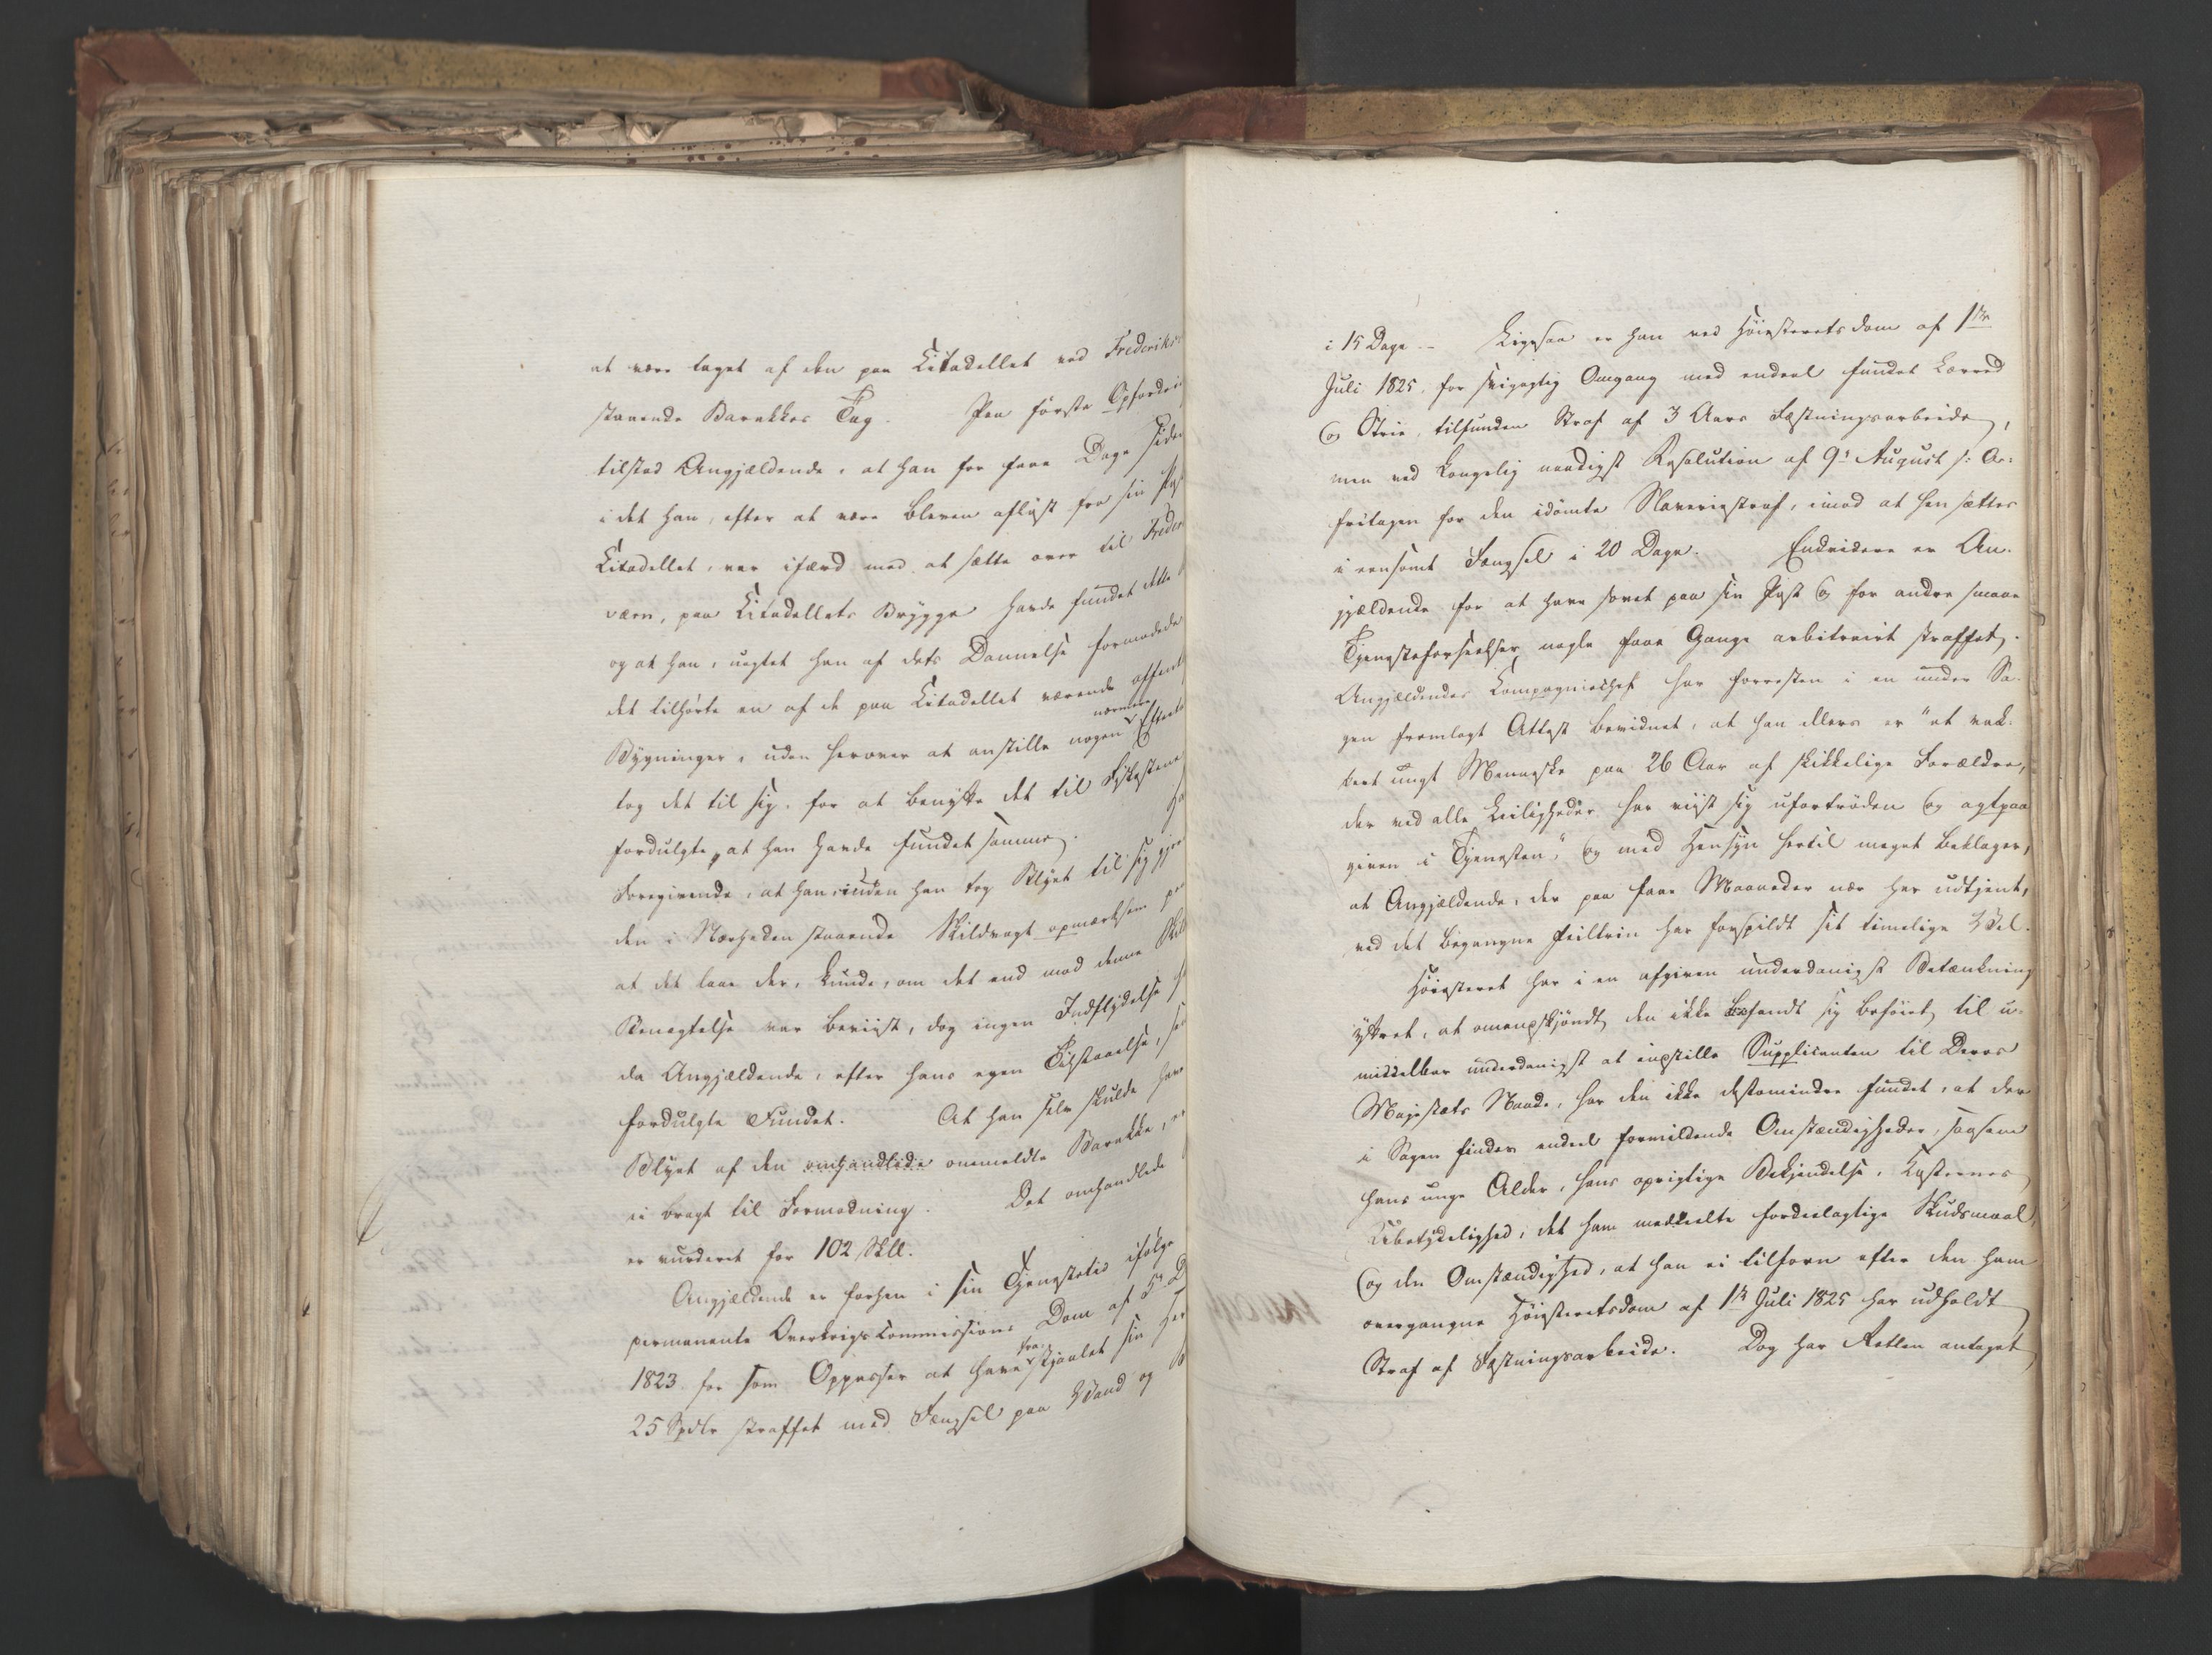 at være taget af den paa Citadellet ved Frederiks
staaende Barakkes Tag. Paa første Opfordri
tilstod Angjældende, at han for faae Dage siden
i det han, efter at være bleven afløst fra sin Post
Citadellet, var ifærd med at sætte over til Freder
værn, paa Citadellets Brygge havde fundet dette
og at han, uagtet han af dets Dannelse formodede
det tilhørte en af de paa Citadellet værende offent
Bygninger, uden herover at anstille nogen nærmere Efter
tog det til sig, for at benytte det til Fiskestene
fordulgte, at han havde fundet samme. Ha
Foregivende, at han, inden han tog Blyet til sig gjor
den i Nærheden staaende Skildvagt opmærksom paa
at det laae der, kunde, om det end mod denne Skil
Benægtelse var beviist, dog ingen Indflydelse
da Angjældende, efter hans egen Tilstaaelse,
fordulgte Fundet. At han selv skulde have
Blyet af den omhandlede ommeldte Barakke, er
ei bragt til Formodning. Det omhandlede
er vurderet for 102 Skll.
Angjældende er forhen i sin Tjenestetid ifølge
permanente Overkrigs Commissions Dom af 5te D
1823 for som Oppasser at have frastjaalet sin Her
25 Spdlr straffet med Fængsel paa Vand og B
i 15 Dage. – Ligesaa er han ved Høiesterets dom af 1ste
Juli 1825, for svigagtig Omgang med endeel fundet Lærred
og Strie, tilfunden Straf af 3 Aars Fæstningsarbeide,
men ved Kongelig naadigst Resolution af 9de August s: A:
fritagen for den idømte Slaveriestraf, imod at hensættes
i eensomt Fængsel i 20 Dage. Endvidere er An-
gjældende for at have sovet paa sin Post og for andre smaae
Tjenesteforseelser, nogle faae Gange arbitrairt straffet.
Angjældendes Compagniechef har forresten i en under Sa-
gen fremlagt Attest bevidnet, at han ellers er "et vak-
kert ungt Menneske paa 26 Aar af skikkelige Forældre,
der ved alle Leiligheder har viist sig ufortrøden og agtpaa
given i Tjenesten", og med Hensyn hertil meget beklager,
at Angjældende, der paa faae Maaneder nær har udtjent,
ved det begangne Feiltrin har forspildt sit timelige Vel.
Høiesteret har i en afgiven underdanigst Betænkning
yttret, at omendskjøndt den ikke befandt sig beføiet til u-
middelbar underdanigst at indstille Supplicanten til Deres
Majestæts Naade, har den ikke destomindre fundet, at der
i Sagen findes endeel formildende Omstændigheder, saasom
hans unge Alder, hans oprigtige Bekjendelse, Kosternes
Ubetydelighed, det ham meddeelte fordeelagtige Skudsmaal,
og den Omstændighed, at han ei tilforn efter den ham
overgangne Høiesteretsdom af 1ste Juli 1825 har udholdt
Straf af Fæstningsarbeide. Dog har Retten antaget